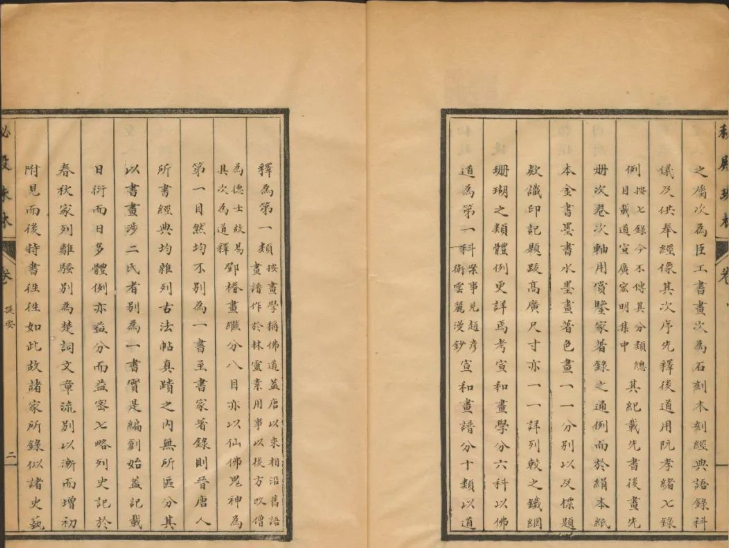 之屬次為臣工書畫次為石刻木刻經典語錄科
儀及供奉經像其次序先釋後道用阮孝緒七錄
例
按七錄今不傳其分類總
目載道宣廣宏明集中
其紀載先書後畫先
冊次卷次軸用賞鑒家著錄之通例而於絹本紙
本金書墨書水墨畫著色畫一一分別以及標題
款識印記題跋高廣尺寸亦一一詳列較之鐵網
珊瑚之類體例更詳焉考宣和畫學分六科以佛
道為第一科
案事見趙彥
衛雲麓漫鈔
宣和畫譜分十類以道
釋為第一類
按畫學稱佛道蓋唐以來相沿舊語
畫譜作於林靈素用事以後方改僧
為德士故易
其次為道釋
鄧椿畫繼分八目亦以仙佛鬼神為
第一目然均不別為一書至書家著錄則晉唐人
所書經典均雜列古法帖真蹟之內無所區分其
以書畫涉二氏者別為一書實是編創始蓋記載
日衍而日多體例亦益分而益密七略列史記於
春秋家列離騷別為楚詞文章流別以漸而增初
附見而後特書往往如此故諸家所錄似諸史藝
提要
二